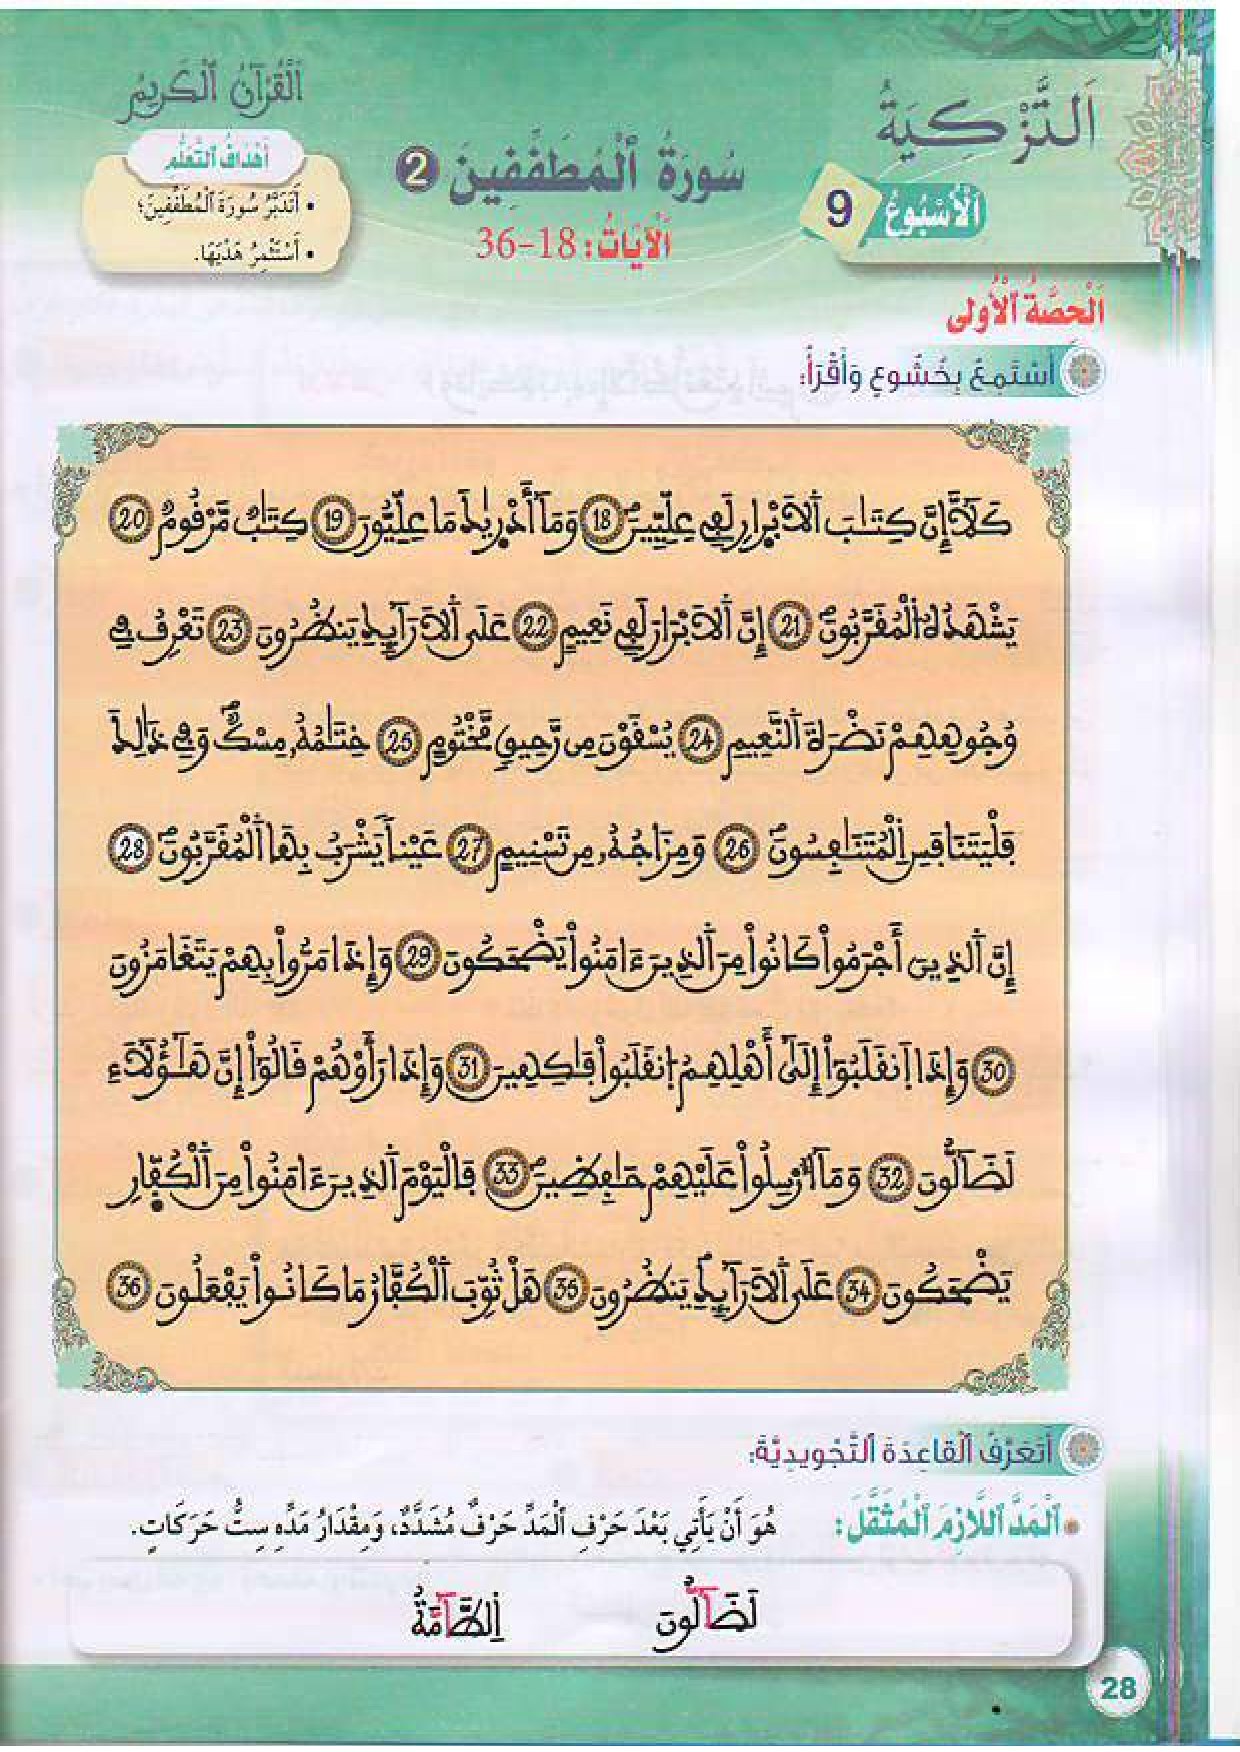 اَلْقُرْآنُ ٱلْكَرِيمُ
اَلتَّزْكِيَةُ
أَهْدَافُ ٱلتَّعَلُّمِ
• أَتَدَبَّرُ سُورَةَ ٱلْمُطَفِّفِينَ؛
• أَسْتَثْمِرُ هَدْيَهَا.
سُورَةُ ٱلْمُطَفِّفِينَ 2
اَلْأُسْبُوعُ 9
اَلْآيَاتُ: 18-36
اَلْحِصَّةُ ٱلْأُولَى
أَسْتَمِعُ بِخُشُوعٍ وَأَقْرَأُ:
كَلَّآ إِنَّ كِتَٰبَ اَ۬لَابْرٰارِ لَفِے عِلِّيِّينَۖ 18 وَمَآ أَدْر۪يٰكَ مَا عِلِّيُّونَ 19 كِتَٰبٞ مَّرْقُومٞ 20
يَشْهَدُهُ اُ۬لْمُقَرَّبُونَۖ 21 إِنَّ اَ۬لَابْرَارَ لَفِے نَعِيمٍ 22 عَلَى اَ۬لَارَآئِكِ يَنظُرُونَ 23 تَعْرِفُ فِے
وُجُوهِهِمْ نَضْرَةَ اَ۬لنَّعِيمِ 24 يُسْقَوْنَ مِن رَّحِيقٖ مَّخْتُومٍ 25 خِتَٰمُهُۥ مِسْكٞۖ وَفِے ذَٰلِكَ
فَلْيَتَنَافَسِ اِ۬لْمُتَنَٰفِسُونَۖ 26 وَمِزَاجُهُۥ مِن تَسْنِيمٍ 27 عَيْناٗ يَشْرَبُ بِهَا اَ۬لْمُقَرَّبُونَۖ 28
إِنَّ اَ۬لذِينَ أَجْرَمُواْ كَانُواْ مِنَ اَ۬لذِينَ ءَامَنُواْ يَضْحَكُونَ 29 وَإِذَا مَرُّواْ بِهِمْ يَتَغَامَزُونَ
30 وَإِذَا اَ۪نقَلَبُوٓاْ إِلَىٰٓ أَهْلِهِمُ اُ۪نقَلَبُواْ فَٰكِهِينَ 31 وَإِذَا رَأَوْهُمْ قَالُوٓاْ إِنَّ هَٰٓؤُلَآءِ
لَضَآلُّونَ 32 وَمَآ أُرْسِلُواْ عَلَيْهِمْ حَٰفِظِينَۖ 33 فَالْيَوْمَ اَ۬لذِينَ ءَامَنُواْ مِنَ اَ۬لْكُفّ۪ارِ
يَضْحَكُونَ 34 عَلَى اَ۬لَارَآئِكِ يَنظُرُونَ 35 هَلْ ثُوِّبَ اَ۬لْكُفَّارُ مَا كَانُواْ يَفْعَلُونَ 36
أَتَعَرَّفُ ٱلْقَاعِدَةَ ٱلتَّجْوِيدِيَّةَ:
• اَلْمَدَّ ٱللَّازِمَ ٱلْمُثَقَّلَ: هُوَ أَنْ يَأْتِيَ بَعْدَ حَرْفِ ٱلْمَدِّ حَرْفٌ مُشَدَّدٌ، وَمِقْدَارُ مَدِّهِ سِتُّ حَرَكَاتٍ.
لَضَآلُّونَ اِ۬لطَّآمَّةُ
28